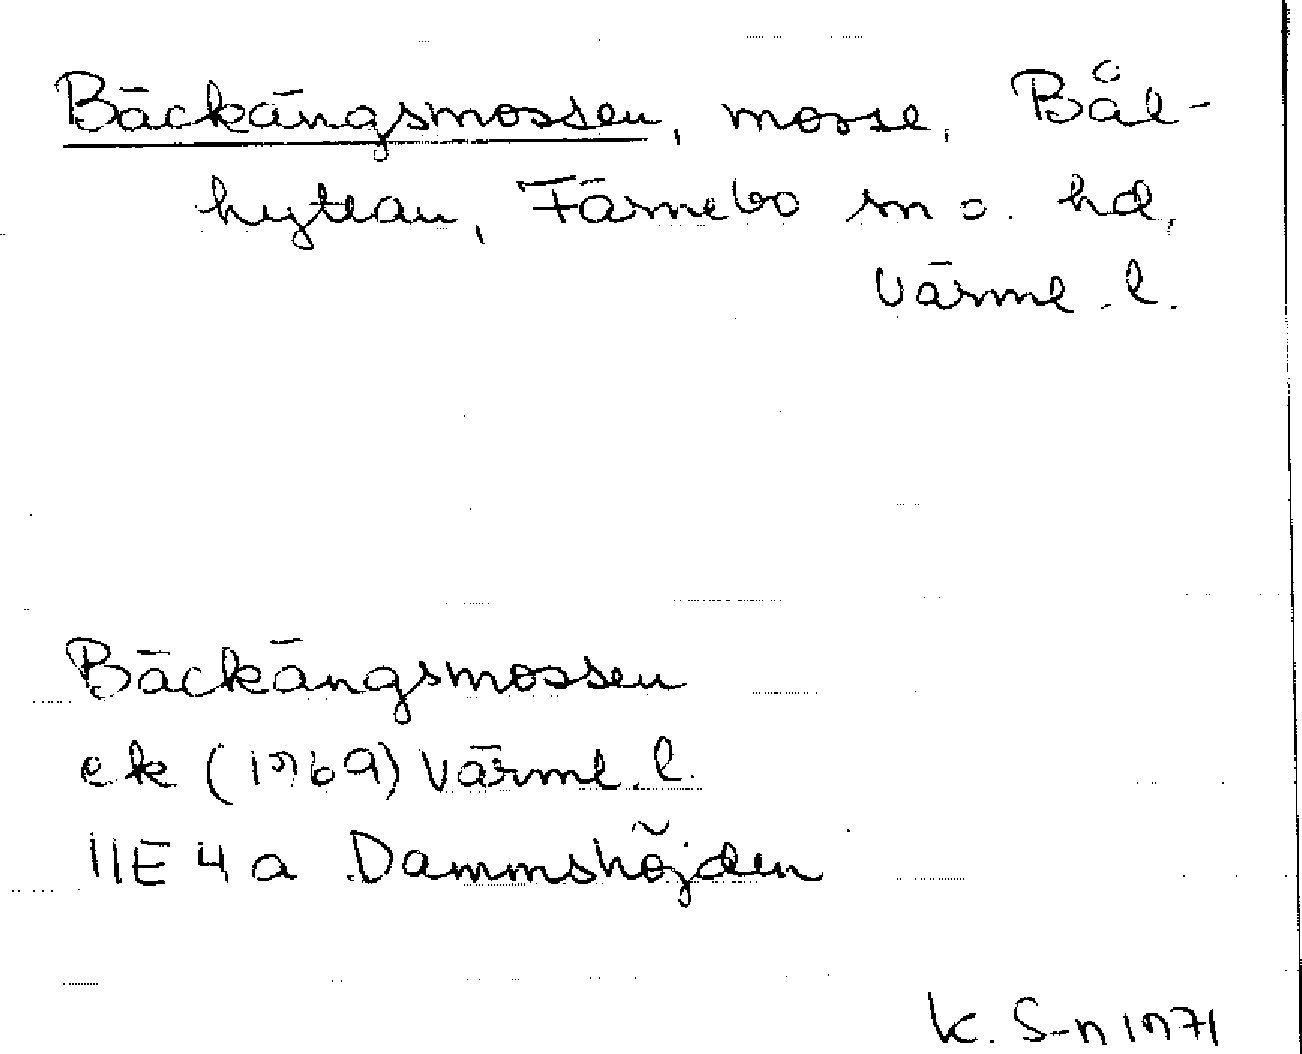 Bäckängsmossen, mosse, Bål-
hyttan, Färnebo sn o. hd,
Värml. l.
Bäckängsmossen
ek (1969) Värml. l.
11E 4a Dammshöjden
K. S-n 1971